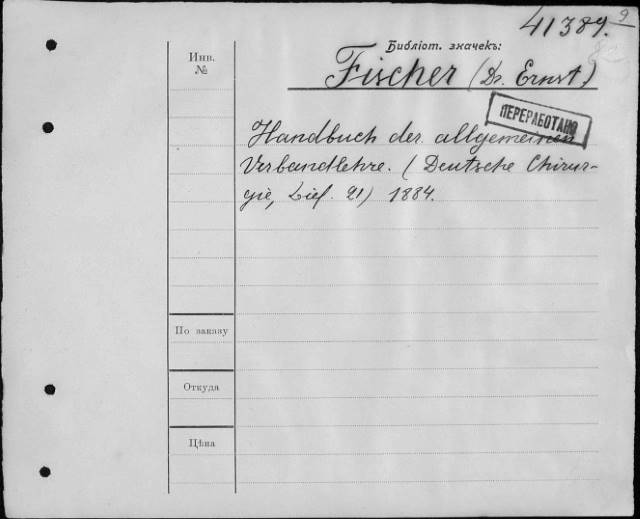 41389. 9
Библіот. значекъ:
Инв.
№
Fischer (Dr. Ernst.)
ПЕРЕРАБОТАНО
Handbuch der allgemeinen
Verbandlehre. (Deutsche Chirur-
gie, Lief. 21) 1884.
По заказу
Откуда
Цѣна